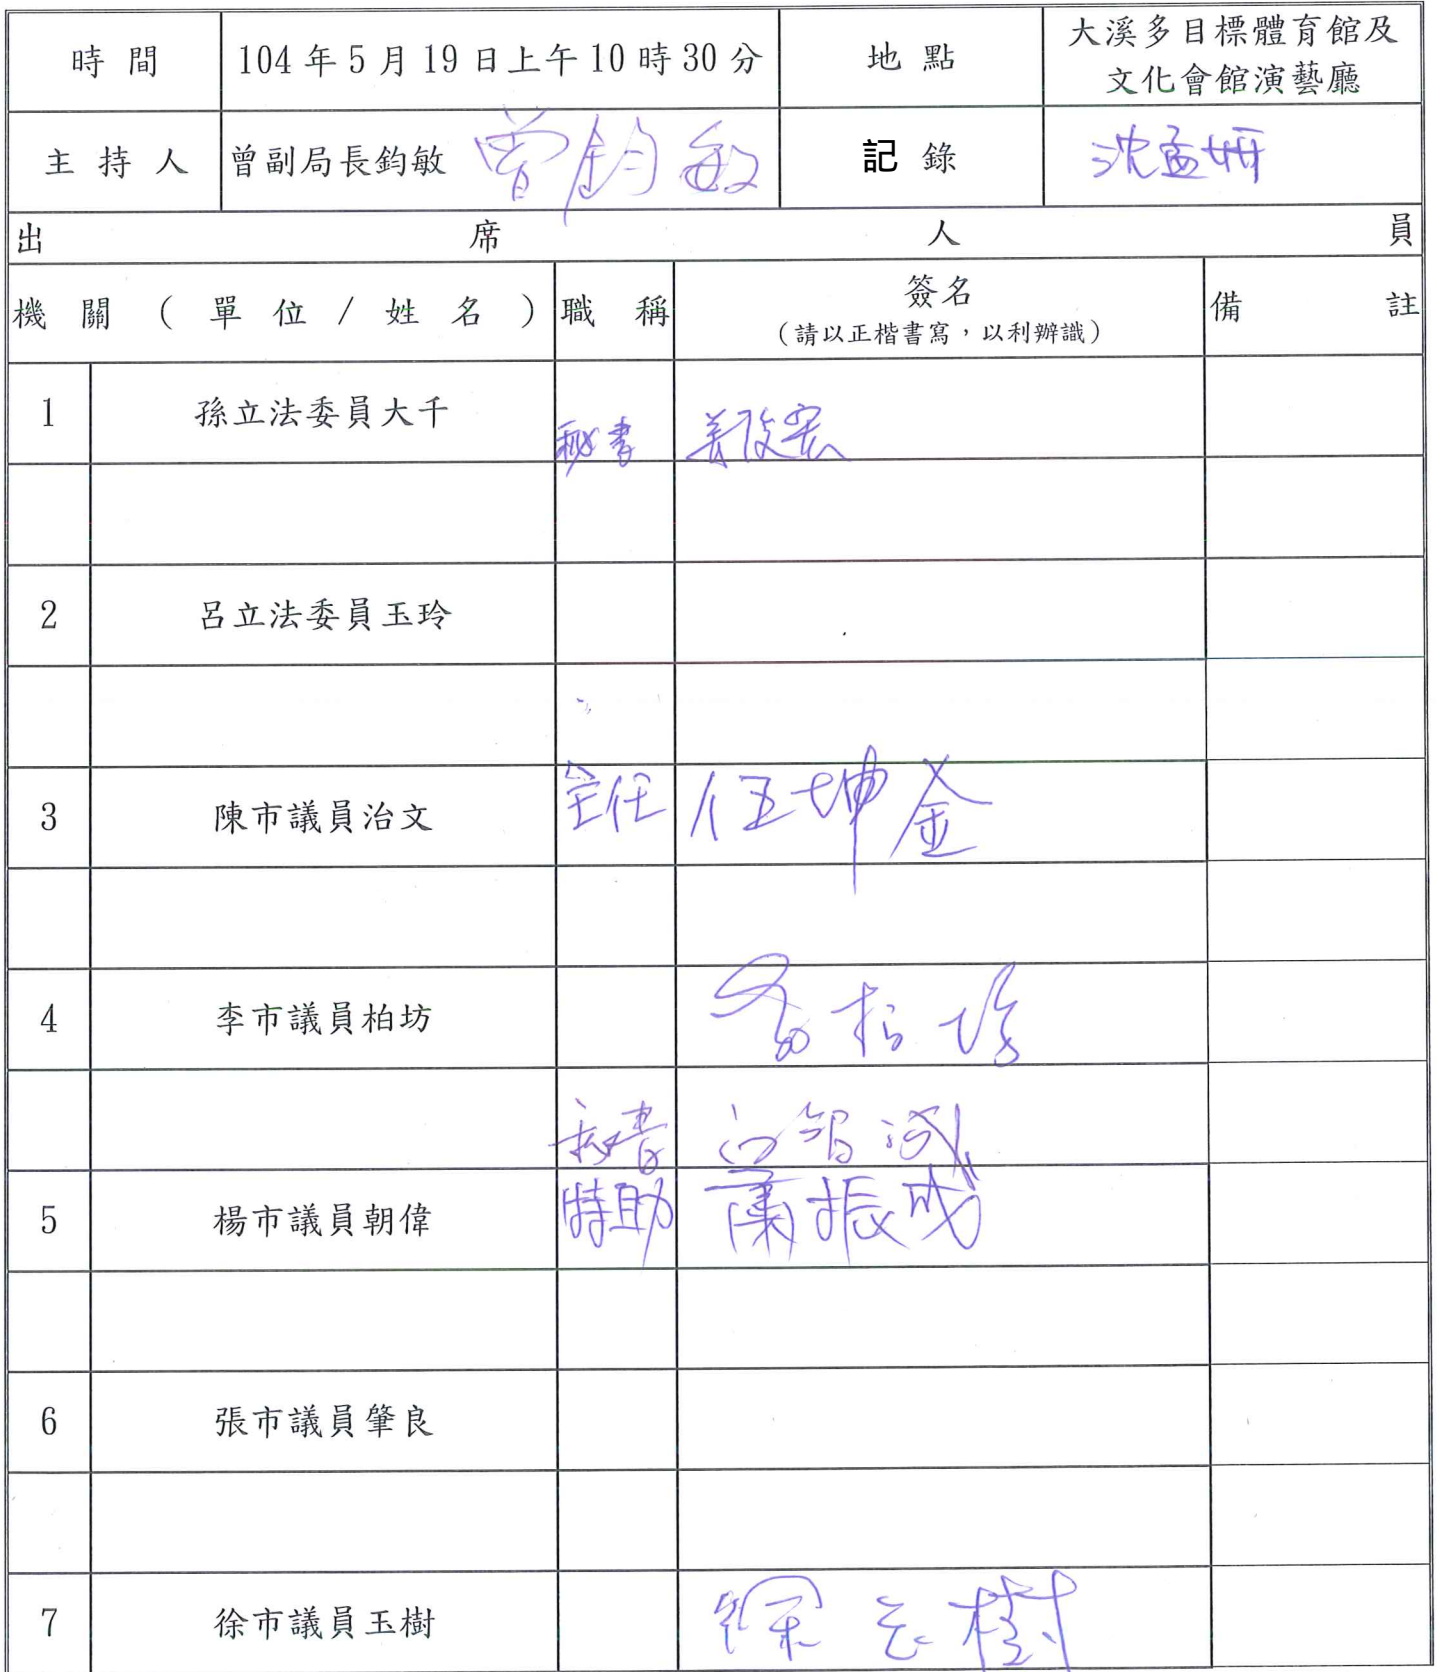 時間 104年5月19日上午10時30分 地點 大溪多目標體育館及
文化會館演藝廳
主持人 曾副局長鈞敏 曾鈞敏 記錄 沈孟妍
出席人員
機關(單位/姓名) 職稱 簽名 備註
(請以正楷書寫,以利辦識)
1 孫立法委員大千 秘書
2 呂立法委員玉玲
3 陳市議員治文 主任 伍坤金
4 李市議員柏坊 李柏坊
秘書
5 楊市議員朝偉 特助 蕭振成
6 張市議員肇良
7 徐市議員玉樹 徐玉樹